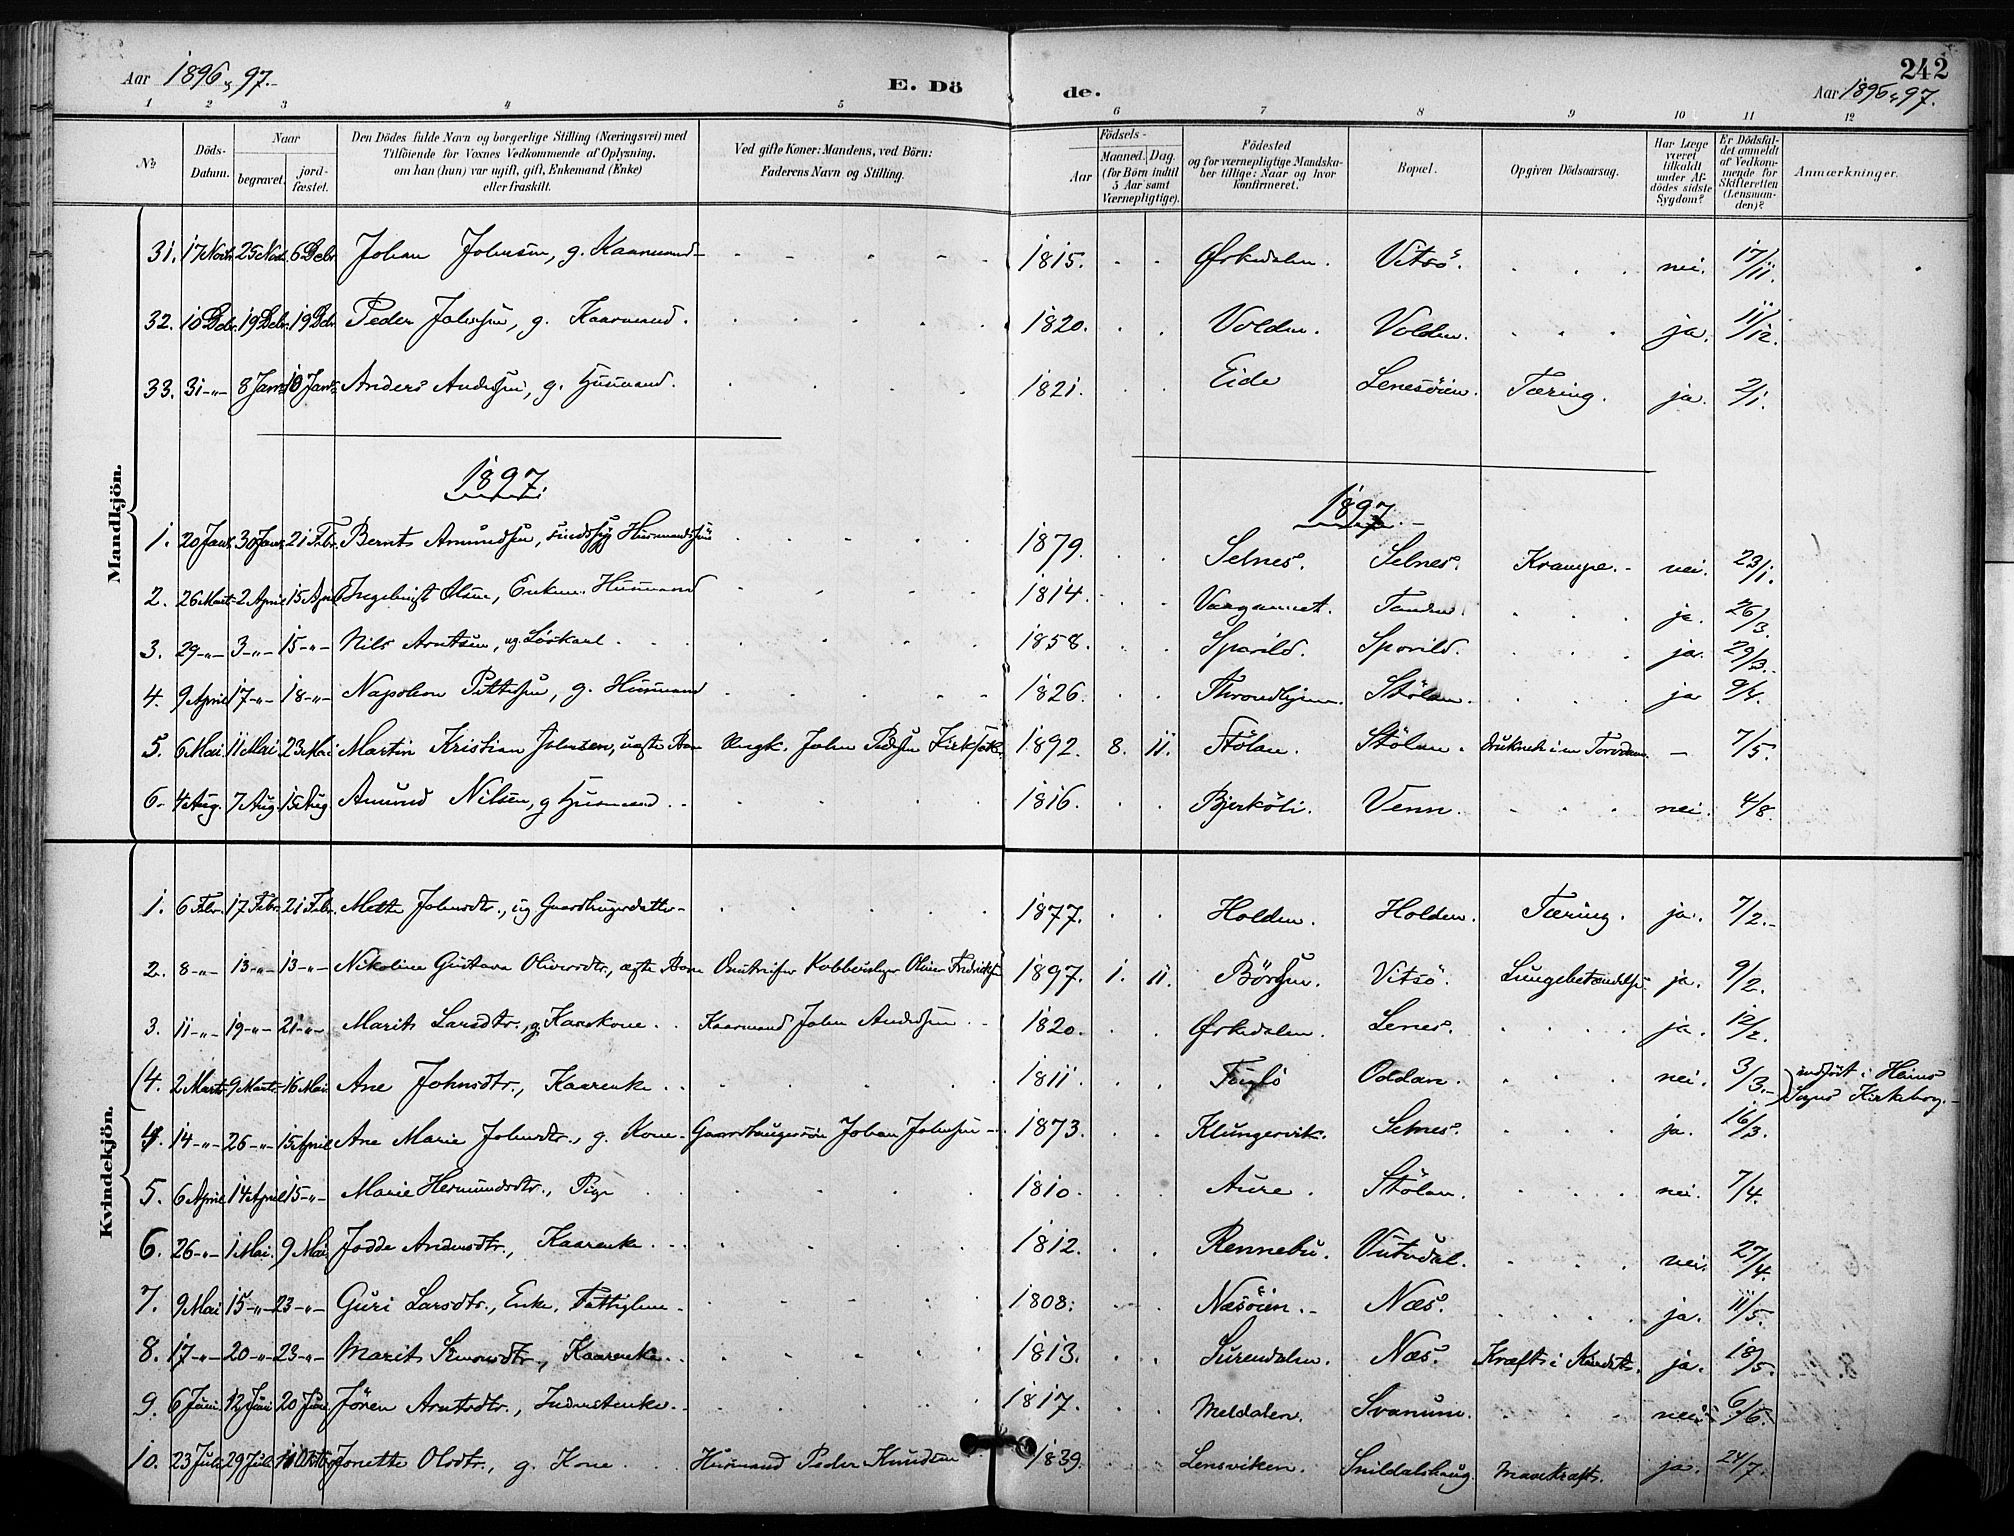 242
Aar 1896 & 97.
E. Dö
de.
Aar 1896 & 97.
1 2 3 4 5 6 7 8 9 10 11 12
No
Döds-Datum.
Naar
begravet.
jord-fæstet.
Den Dödes fulde Navn og borgerlige Stilling (Næringsvei) med
Tilföiende for Voxnes Vedkommende af Oplysning,
om han (hun) var ugift, gift, Enkemand (Enke)
eller fraskilt.
Ved gifte Koner: Mandens, ved Börn:
Faderens Navn og Stilling.
Födsels-
Aar
Maaned. Dag.
(for Börn indtil
5 Aar samt
Værnepligtige).
Födested
og for værnepligtige Mandska-
ber tillige: Naar og hvor
konfirmeret.
Bopæl.
Opgiven Dödsaarsag.
Har Læge
været
tilkaldt
under Af-
dödes sidste
Sygdom?
Er Dödsfal-
det anmeldt
af Vedkom-
mende for
Skifteretten
(Lensman-
den)?
Anmærkninger.
Mandkjön.
31. 17 Novbr. 25 Nov. 6 Debr. Johan Johnsen, g. Kaarmand 1815. Ørkedalen. Vitsö. nei. 17/11.
32. 10 Debr. 19 Debr. 19 Debr. Peder Johnsen, g. Kaarmand. 1820. Volden. Volden. ja. 11/12.
33. 31 -"- 8 Janr. 10 Janr. Anders Andersen, g. Husmand. 1821. Eide Lenesöien. Tæring. ja. 2/1.
1897.
1897.
1. 20 Janr. 30 Janr. 21 Febr. Bernts Amundsen, sindssyg Husmandssön 1879. Selnes. Selnes. Krampe. nei. 23/1.
2. 26 Marts 2 April 15 April Ingebrigt Olsen, Enkem. Husmand 1814. Tanden. ja. 26/3.
3. 29 -"- 3 -"- 15 -"- Nils Arntsen, ug Löskarl 1858. Sporild. Sporild. ja. 29/3.
4. 9 April 17 -"- 18 -"- Napoleon Pettersen, g. Husmand 1826. Throndhjem. Stölan. ja 9/4.
5. 6 Mai 11 Mai 23 Mai Martin Kristian Johnsen, ægte Barn Ungk. John Pedersen 1892. 8. 11. Stölan. Stölan. druknet i en Torvdam. - 7/5.
6. 4 Aug. 7 Aug. 15 Aug. Amund Nilsen, g Husmand 1816. Bjerköli. Venn. nei. 4/8.
Kvindekjön.
1. 6 Febr. 17 Febr. 21 Febr. Mette Johnsdtr., ug Gaardbrugerdatter 1877. Holden. Holden. Tæring. ja. 7/2.
2. 8 -"- 13 -"- 13 -"- Nikoline Gustava Oliversdtr., ægte Barn Omreisende Kobberslager Oliver Fredriksen 1897. 1. 11. Börsen. Vitsö. Lungebetændelse. ja. 9/2.
3. 11 -"- 19 -"- 21 -"- Marit Larsdtr., g. Karskone Kaarmand John Andersen 1820. Ørkedalen. Lenes. ja. 12/2.
(4. 2 Marts 9 Marts 16 Mai Ane Johnsdtr., Kaarenke 1811. Fuglö Oddan. nei. 3/3. indfört i Heims
Sogns Kirkebog.
4. 14 -"- 26 -"- 15 April Ane Marie Johnsdtr., g. Kone. Gaardbrugersön Johan Johnsen 1873. Klungervik. Selnes. ja. 16/3.
5. 6 April 14 April 15 -"- Marie Hermundsdtr., Pige 1810. Aure. Stölan. nei. 7/4.
6. 26 -"- 1 Mai. 9 Mai. Jodde Andersdtr., Kaarenke 1812. Rennebu. Vutudal. nei. 27/4.
7. 9 Mai 15 -"- 23 -"- Guri Larsdtr., Enke, Fattiglem 1808. Næsöien. Næs. ja. 11/5.
8. 17 -"- 20 -"- 23 -"- Marit Simonsdtr., Kaarenke 1813. Surendalen. Næs. Kræft i ja. 18/5.
9. 6 Juni 12 Juni 20 Juni. Jören Arntsdtr., Inderstenke 1817. Meldalen. Svanum. nei. 6/6.
10. 23 Juli 29 Juli Jonette Olsdtr., g. Kone Husmand Peder Knudsen 1839. Lensviken. Snildalshaug. Mavekræft. ja. 24/7.